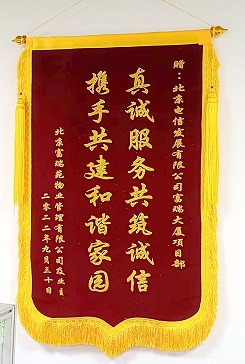 赠：北京电信发展有限公司富瑞大厦项目部
真诚服务共筑诚信
携手共建和谐家园
北京富瑞苑物业管理有限公司及业主
二零二二年九月三十日